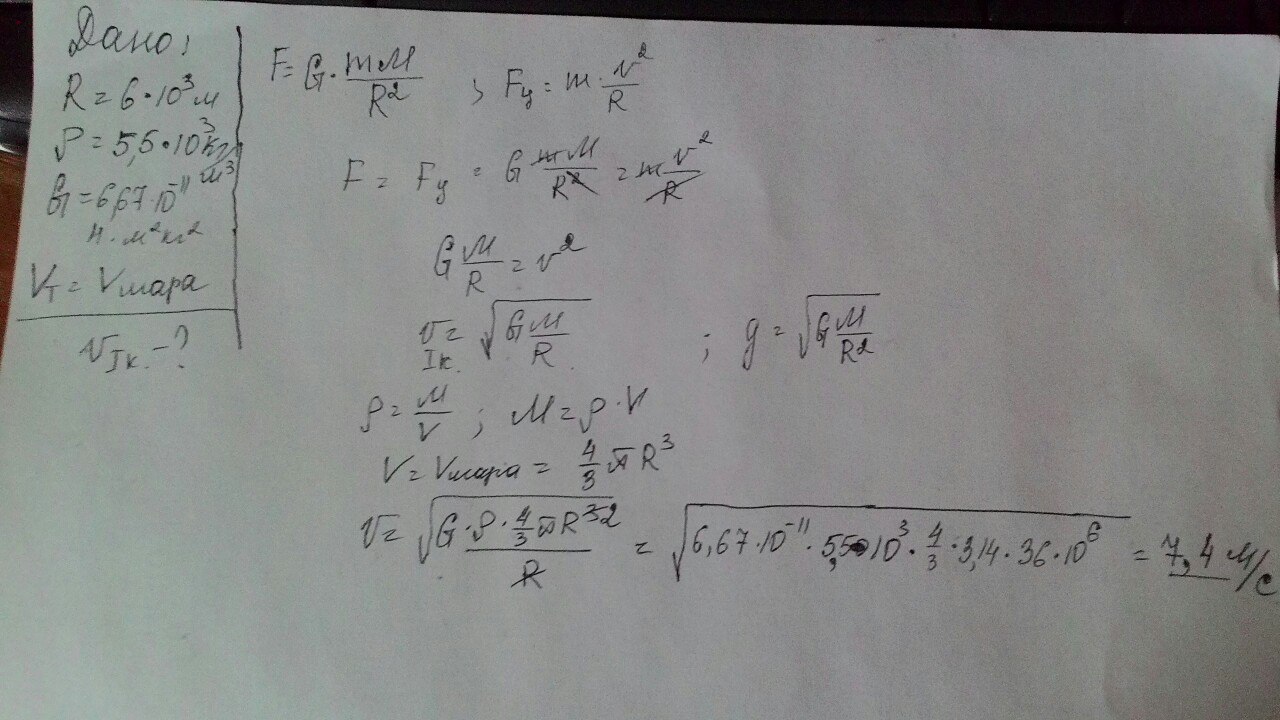 Дано:
R = 6·10³ м
ρ = 5,5·10³ кг/м³
G = 6,67·10⁻¹¹
Н·м²кг²
Vт = Vшара
v Iк. - ?
F = G · mM/R² ; Fц = m · v²/R
F = Fц = G mM/R² = m v²/R
G M/R = v²
v Iк. = √(G M/R) ; g = √(G M/R²)
ρ = M/V ; M = ρ · V
V = Vшара = 4/3 πR³
v = √(G · ρ · 4/3 πR³ ²/R) = √(6,67·10⁻¹¹ · 5,5·10³ · 4/3 · 3,14 · 36·10⁶) = 7,4 м/с